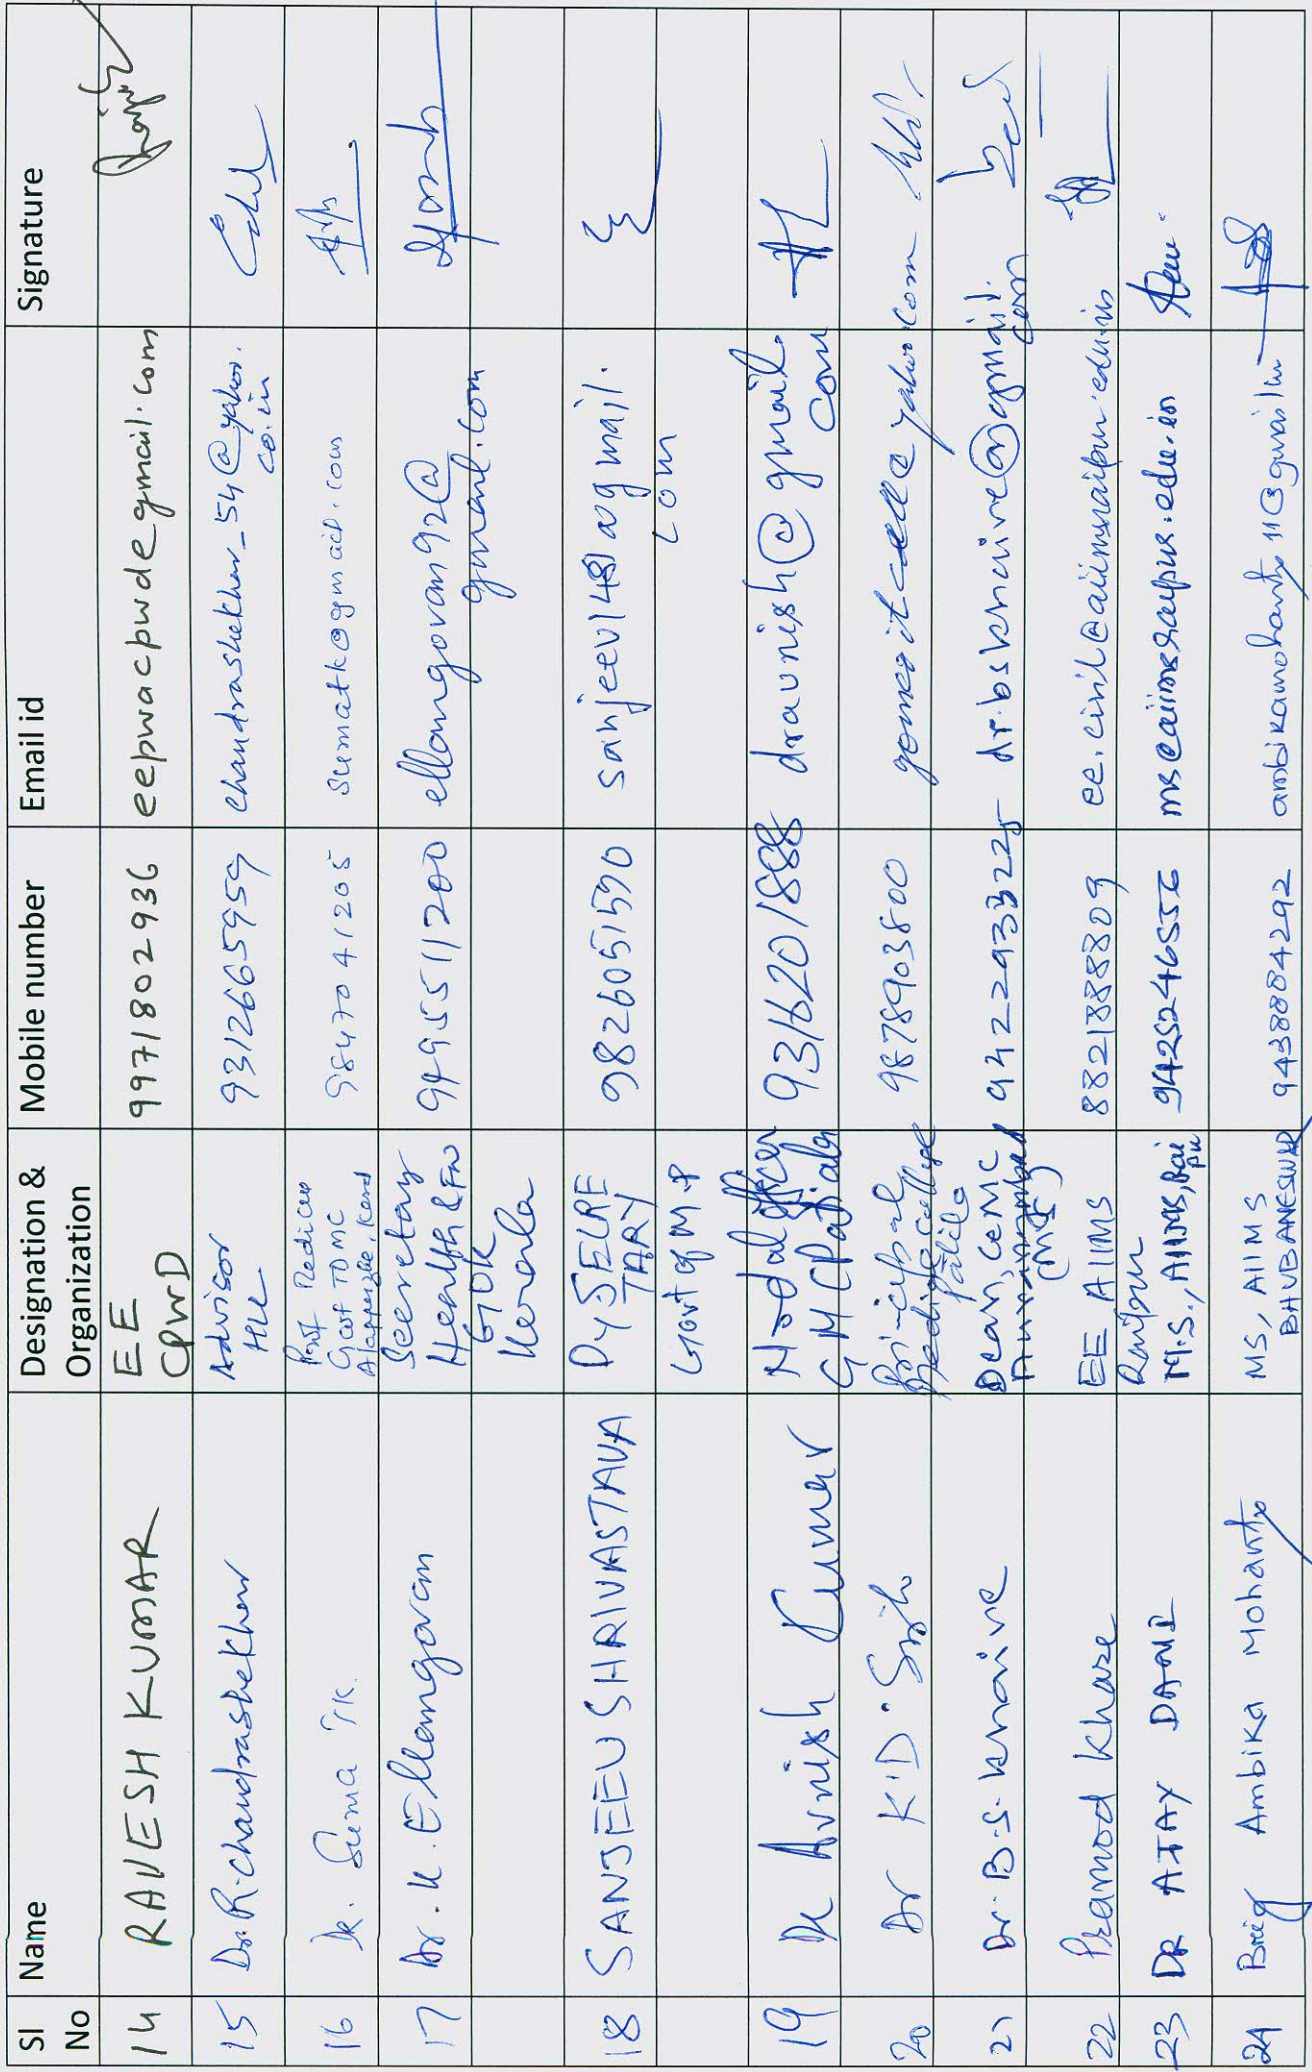 Sl No Name Designation & Organization Mobile number Email id Signature
14 RAVESH KUMAR EE CPWD 9971802936 eepwacpwd@gmail.com
15 Dr. R. Chandrashekhar Advisor 9312665959 chandrashekhar_54@yahoo.co.in
16 Dr. Suma TK. Prof Medicine Govt TDMC 9847041205 sumatk@gmail.com
17 Dr. K. Ellangovan Secretary Health & FW GOK Kerala 9495511200 ellangovan92@gmail.com
18 SANJEEV SHRIVASTAVA Dy SECRETARY Govt of M.P 9826051590 sanjeev1481@gmail.com
19 Dr Avnish Kumar Nodal officer GMC Patiala 9316201888 dravnish@gmail.com
20 Dr K.D. Singh Principal Medical College 9878903800 yahoo.com
21 Dr. B.S. Khaire Dean, GMC 9422293225 dr.bskhaire@gmail.com
22 Pramod Khare EE AIIMS Raipur 8821888809 ee.civil@aiimsraipur.edu.in
23 DR AJAY DANI M.S., AIIMS, Raipur 9425246556 ms@aiimsraipur.edu.in
24 Brig Ambika Mohanty MS, AIIMS BHUBANESWAR 9438884292